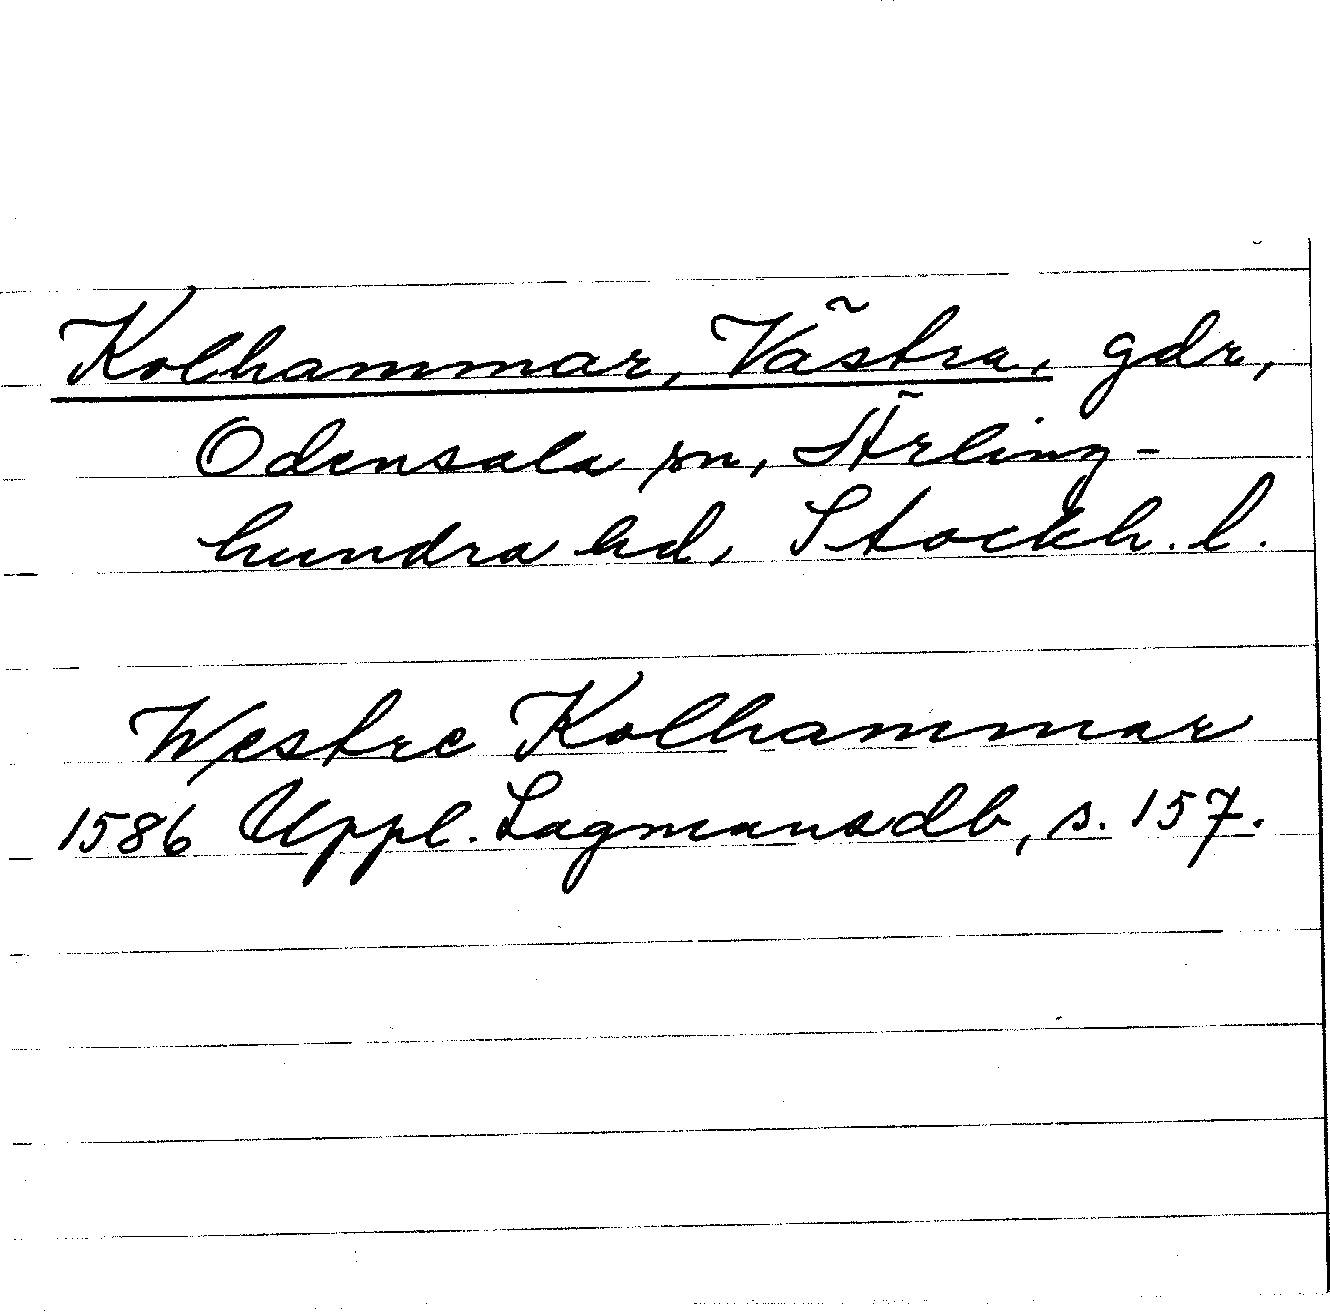 Kolhammar, Västra, gdr,
Odensala sn, Ärling-
hundra hd, Stockh. l.
Westre Kolhammar
1586 Uppl. Lagmansdb, s. 157.